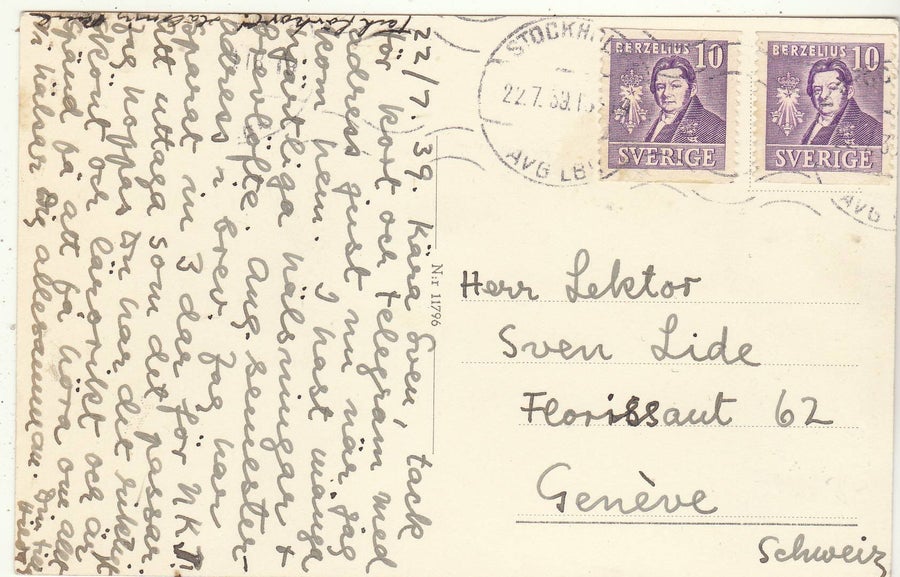 22/7. 39. Kära Sven, tack
för kort och telegram med
adress just nu när jag
kom hem. I hast många
hjärtliga hälsningar +
brevlöfte. Ang. semester-
adress i brev. Jag har
sparat in 3 dar för N.K.T.
att uttaga som det passar.
Jag hoppas Du har det riktigt
skönt och lärorikt och är
spänd på att få höra om allt
Vi hälsar Dig allesamman. Din
Tack för kortet
STOCKH
22.7.39.
AVG LBR
BERZELIUS 10
SVERIGE
BERZELIUS 10
SVERIGE
AVG
N:r 11796
Herr Lektor
Sven Lide
Florissaut 62
Genève
Schweiz